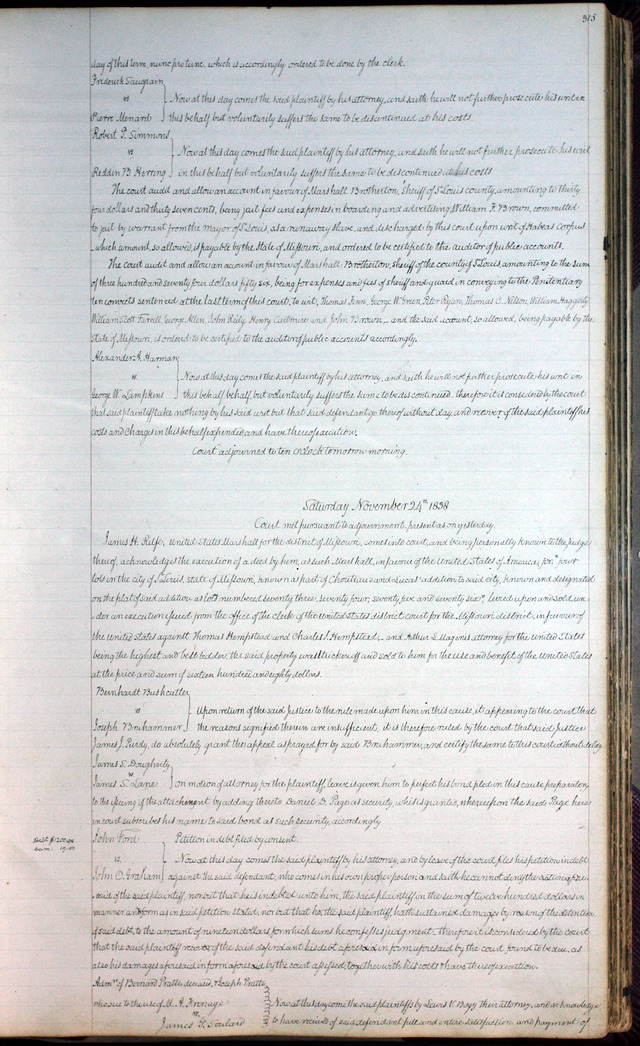 315
day of this term, nunc pro tunc, which is accordingly ordered to be done by the clerk.
Frederick Saugrain
vs } Now at this day comes the said plaintiff by his attorney, and saith he will not further prosecute his writ in
Pierre Menard this behalf but voluntarily suffers the same to be discontinued at his costs.
Robert P. Simmons
vs } Now at this day comes the said plaintiff by his attorney, and saith he will not further prosecute his writ
Reddin B Herring in this behalf but voluntarily suffers the same to be discontinued at his costs
The court audit and allow an account in favour of Marshall Brotherton, Sheriff of St Louis county, amounting to thirty
four dollars and thirty seven cents, being jail fees and expenses in boarding and advertising William F. Brown, committed
to jail by warrant from the mayor of St Louis, as a runaway slave, and discharged by this court upon writ of Habeas Corpus
which amount, so allowed, is payable by the State of Missouri, and ordered to be certified to the auditor of public accounts.
The court audit and allow an account in favour of Marshall Brotherton, sheriff of the county of St Louis, amounting to the sum
of three hundred and seventy four dollars fifty six, being for expenses and fees of sheriff and guard in conveying to the Penitentiary
ten convicts sentenced at the last term of this court, to wit, Thomas Finn, George W. Green, Peter Ryan, Thomas C. Nelson, William Haggerty
William Scott Ferrell, George Allen, John Reily, Henry and John Brown, and the said account, so allowed, being payable by the
State of Missouri, is ordered to be certified to the auditor of public accounts accordingly.
Alexander A. Harman
vs. } Now at this day comes the said plaintiff by his attorney, and saith he will not further prosecute his writ in
George W. Lampkins this behalf behalf but voluntarily suffers the same to be discontinued. therefore it is considered by the court
that said plaintiff take nothing by his said writ but that said defendant go thereof without day, and recover of the said plaintiff his
costs and charges in this behalf expended and have thereof execution.
Court adjourned to ten o'clock tomorrow morning.
Saturday November 24th 1838
Court met pursuant to adjournment. present as on yesterday.
James H. Relfe, United States Marshall for the district of Missouri, comes into court, and being personally known to the judge
thereof, acknowledges the execution of a deed by him, as such Marshall, in favour of the United States of America, for four
lots in the city of St Louis, state of Missouri, known as part of Chouteau and Lucas' addition to said city, known and designated
on the plat of said addition as lots numbered seventy three, seventy four, seventy six and seventy six, levied upon and sold un-
der an execution issued from the office of the clerk of the united states district court for the Missouri district, in favour of
the united states against Thomas Hempstead and Charles S. Hempstead, and Arthur L. Magenis attorney for the united states
being the highest and best bidder, the said property was struck off and sold to him for the use and benefit of the United States
at the price and sum of sixteen hundred and eighty dollars.
Bernhardt Bushcutter
vs } Upon return of the said justice to the rule made upon him in this cause, it appearing to the court that
Joseph Brnihammer the reasons signified therein are insufficient, it is therefore ruled by the court that said Justice
James J. Purdy, do absolutely grant the appeal as prayed for by said Brnihammer, and certify the same to this court without delay
James S. Dougherty
vs
James S. Lane } on motion of attorney for the plaintiff, leave is given him to perfect his bond filed in this cause preparatory
to the issuing of the attachment by adding thereto Daniel D. Page as security, which is granted, whereupon the said Page here
in court subscribes his name to said bond as such security, accordingly.
Debt $1200.00
Dam: 19.00
John Ford Petition in debt filed by consent.
vs. } Now at this day comes the said plaintiff by his attorney, and by leave of the court files his petition in debt
John O. Graham against the said defendant, who comes in his own proper person and saith he cannot deny the action afore-
said of the said plaintiff, nor but that he is indebted unto him, the said plaintiff in the sum of twelve hundred dollars in
manner and form as in said petition stated, nor but that he, the said plaintiff, hath sustained damages by reason of the detention
of said debt, to the amount of nineteen dollars for which sums he confesses judgment. Therefore it is considered by the court
that the said plaintiff recover of the said defendant his debt aforesaid in form aforesaid by the court found to be due, as
also his damages aforesaid in form aforesaid by the court assessed, together with his costs & have thereof execution.
Admrs of Bernard Pratte deceased, & Joseph Pratte
who sue to the use of M. A. } Now at this day come the said plaintiffs by Lewis V. Bogy their attorney, and acknowledge
vs.
James G. Soulard to have received of said defendant full and entire satisfaction and payment of